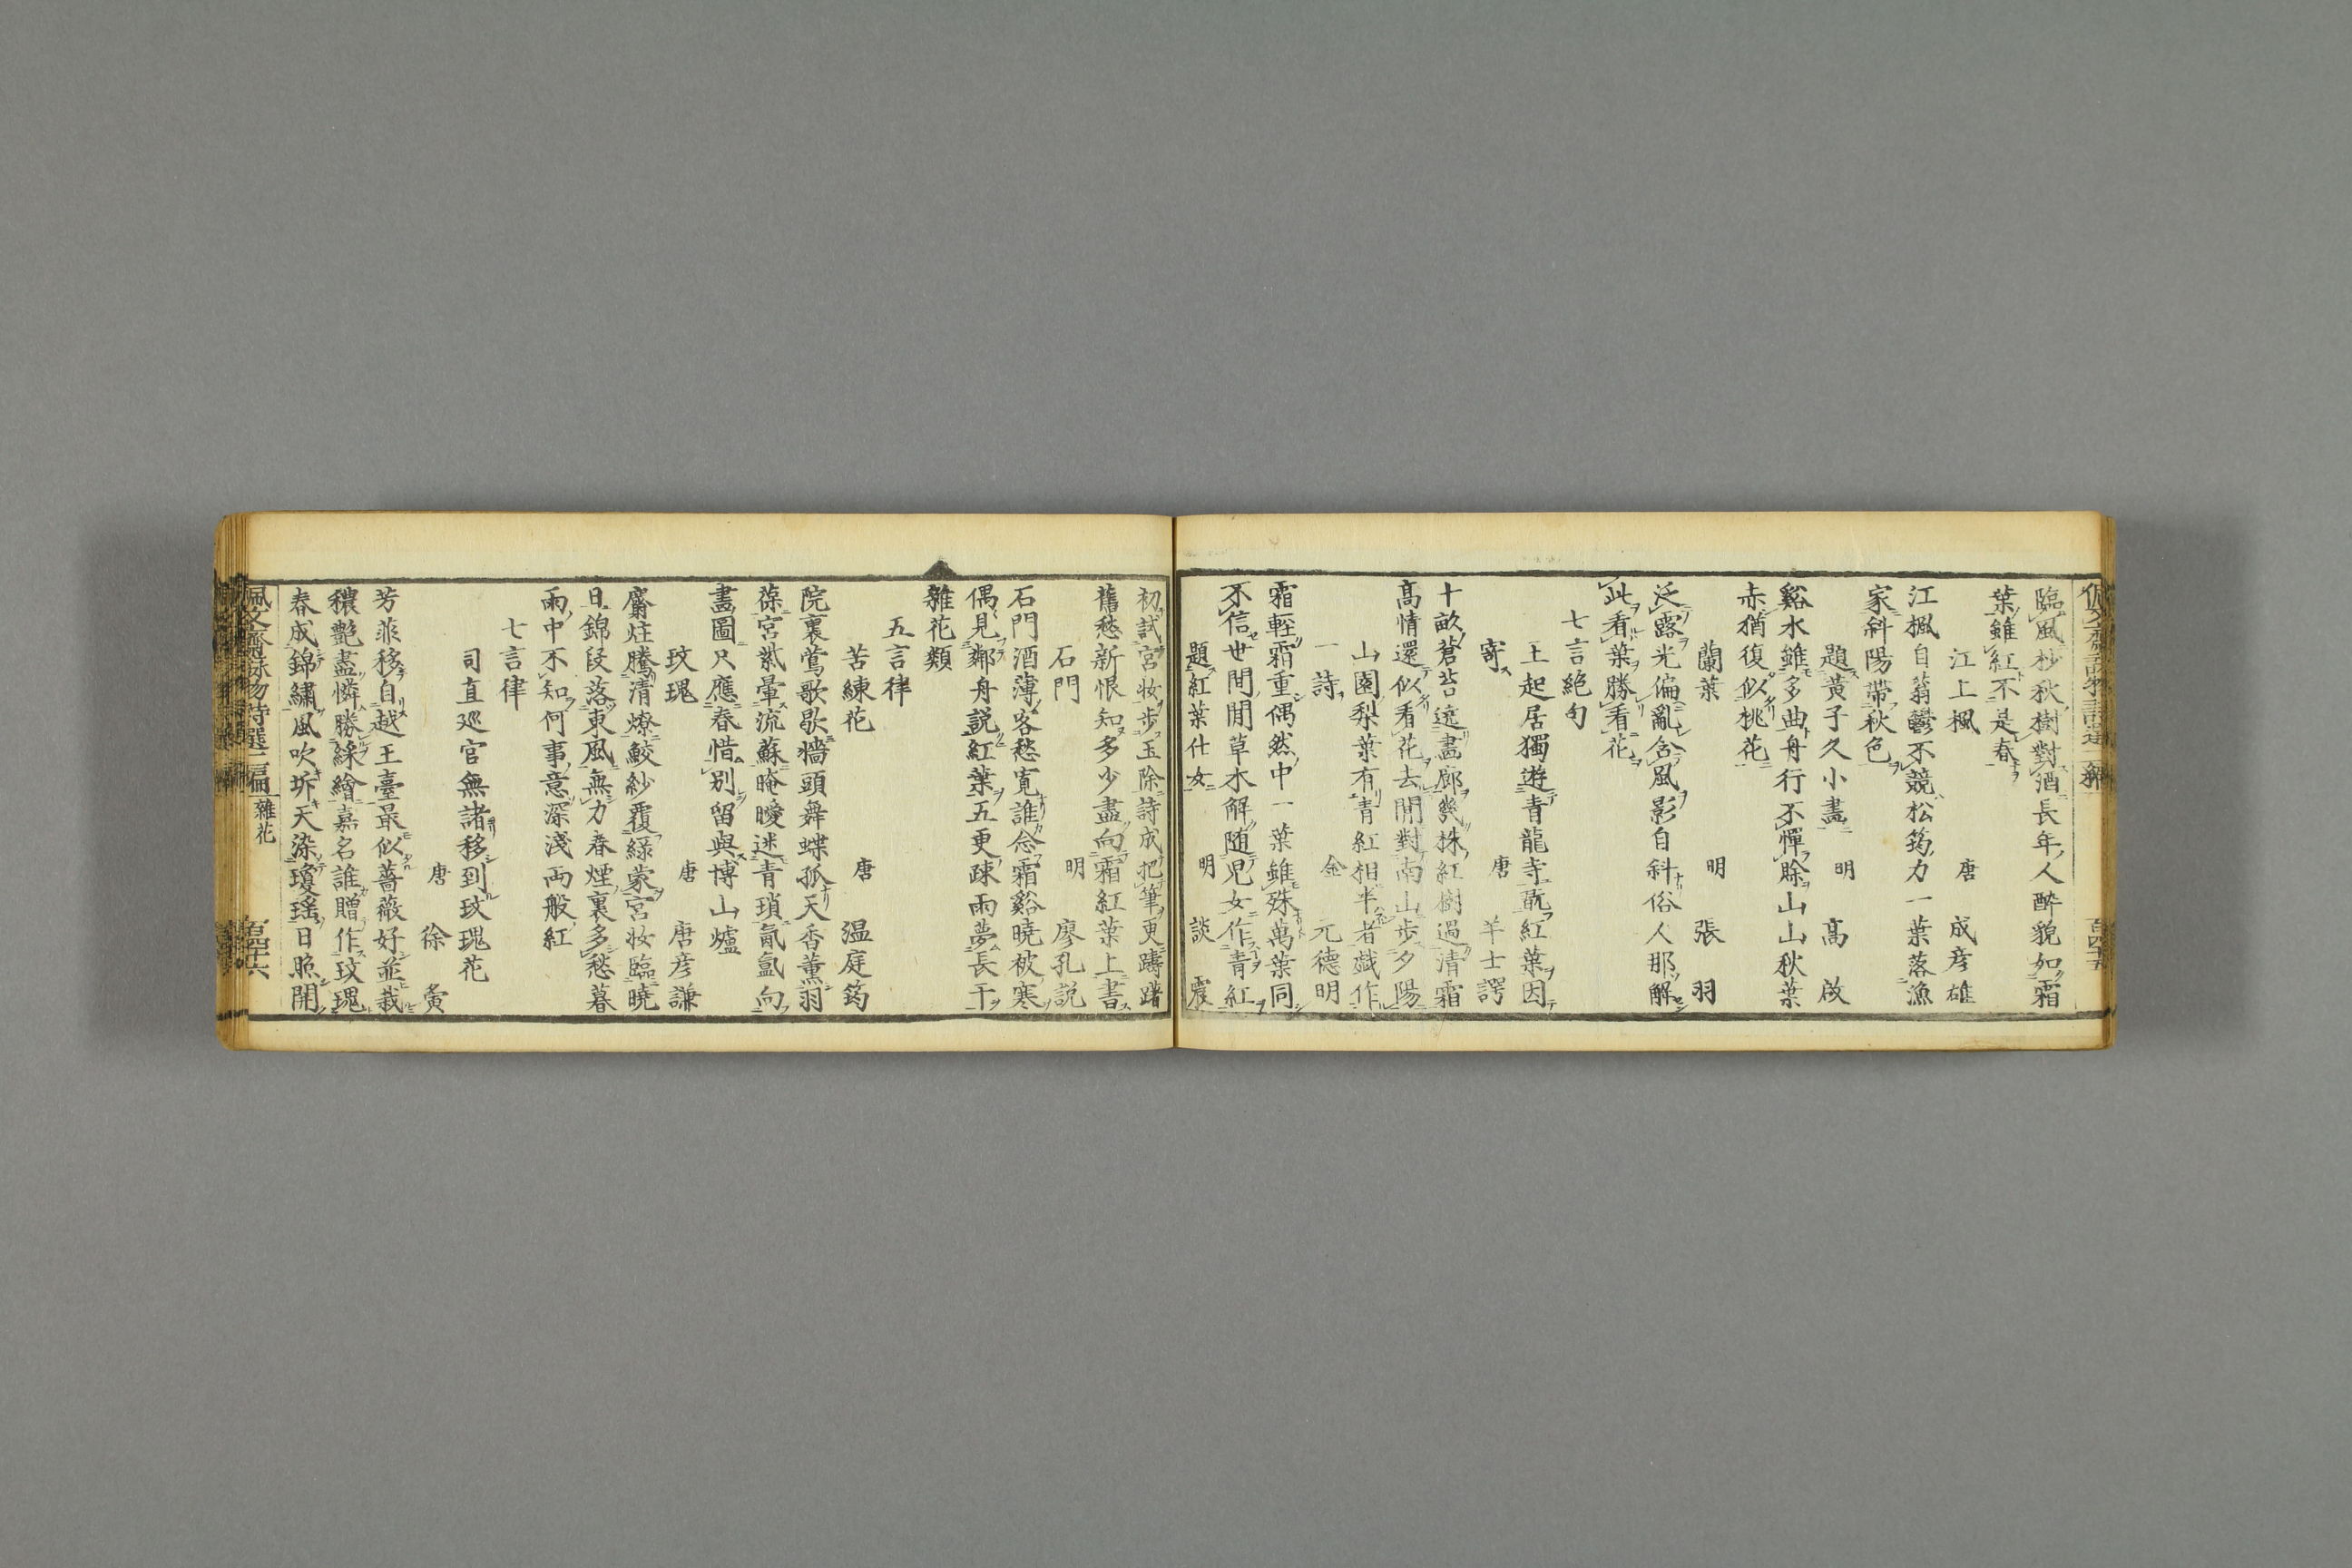 臨風杪秋樹對酒長年人醉貌如霜
葉雖紅不是春
江上楓 唐 成彦雄
江楓自蓊鬱不競松筠力一葉落漁
家斜陽帶秋色
題黃子久小畫 明 高啟
谿水雖多曲舟行不憚賖山山秋葉
赤猶復似桃花
蘭葉 明 張羽
泛露光偏亂含風影自斜俗人那解
此看葉勝看花
七言絶句
王起居獨遊青龍寺翫紅葉因
寄 唐 羊士諤
十畝蒼苔遶畫廊幾株紅樹過清霜
高情還似看花去閒對南山步夕陽
山園梨葉有青紅相半者戯作
一詩 金 元德明
霜輕霜重偶然中一葉雖殊萬葉同
不信世間閒草木解随児女作青紅
題紅葉仕女 明 談震
初試宮妝步玉除詩成把筆更躊躇
舊愁新恨知多少盡向霜紅葉上書
石門 明 廖孔説
石門酒薄客愁寛誰念霜谿曉被寒
偶見鄰舟説紅葉五更疎雨夢長干
雜花類
五言律
苦練花 唐 温庭筠
院裏鶯歌歇墻頭舞蝶孤天香薫羽
葆宮紫暈流蘇晻曖迷青瑣氤氳向
畫圖只應春惜別留與博山爐
玫瑰 唐 唐彦謙
麝炷騰清燎鮫紗覆緑蒙宮妝臨曉
日錦段落東風無力春煙裏多愁暮
雨中不知何事意深淺兩般紅
七言律
司直巡官無諸移到玫瑰花
唐 徐夤
芳菲移自越王臺最似薔薇好並栽
穠艷盡憐勝綵繪嘉名誰贈作玫瑰
春成錦繡風吹坼天染瓊瑶日照開
佩文齋詠物詩選二編 雜花 百四十六